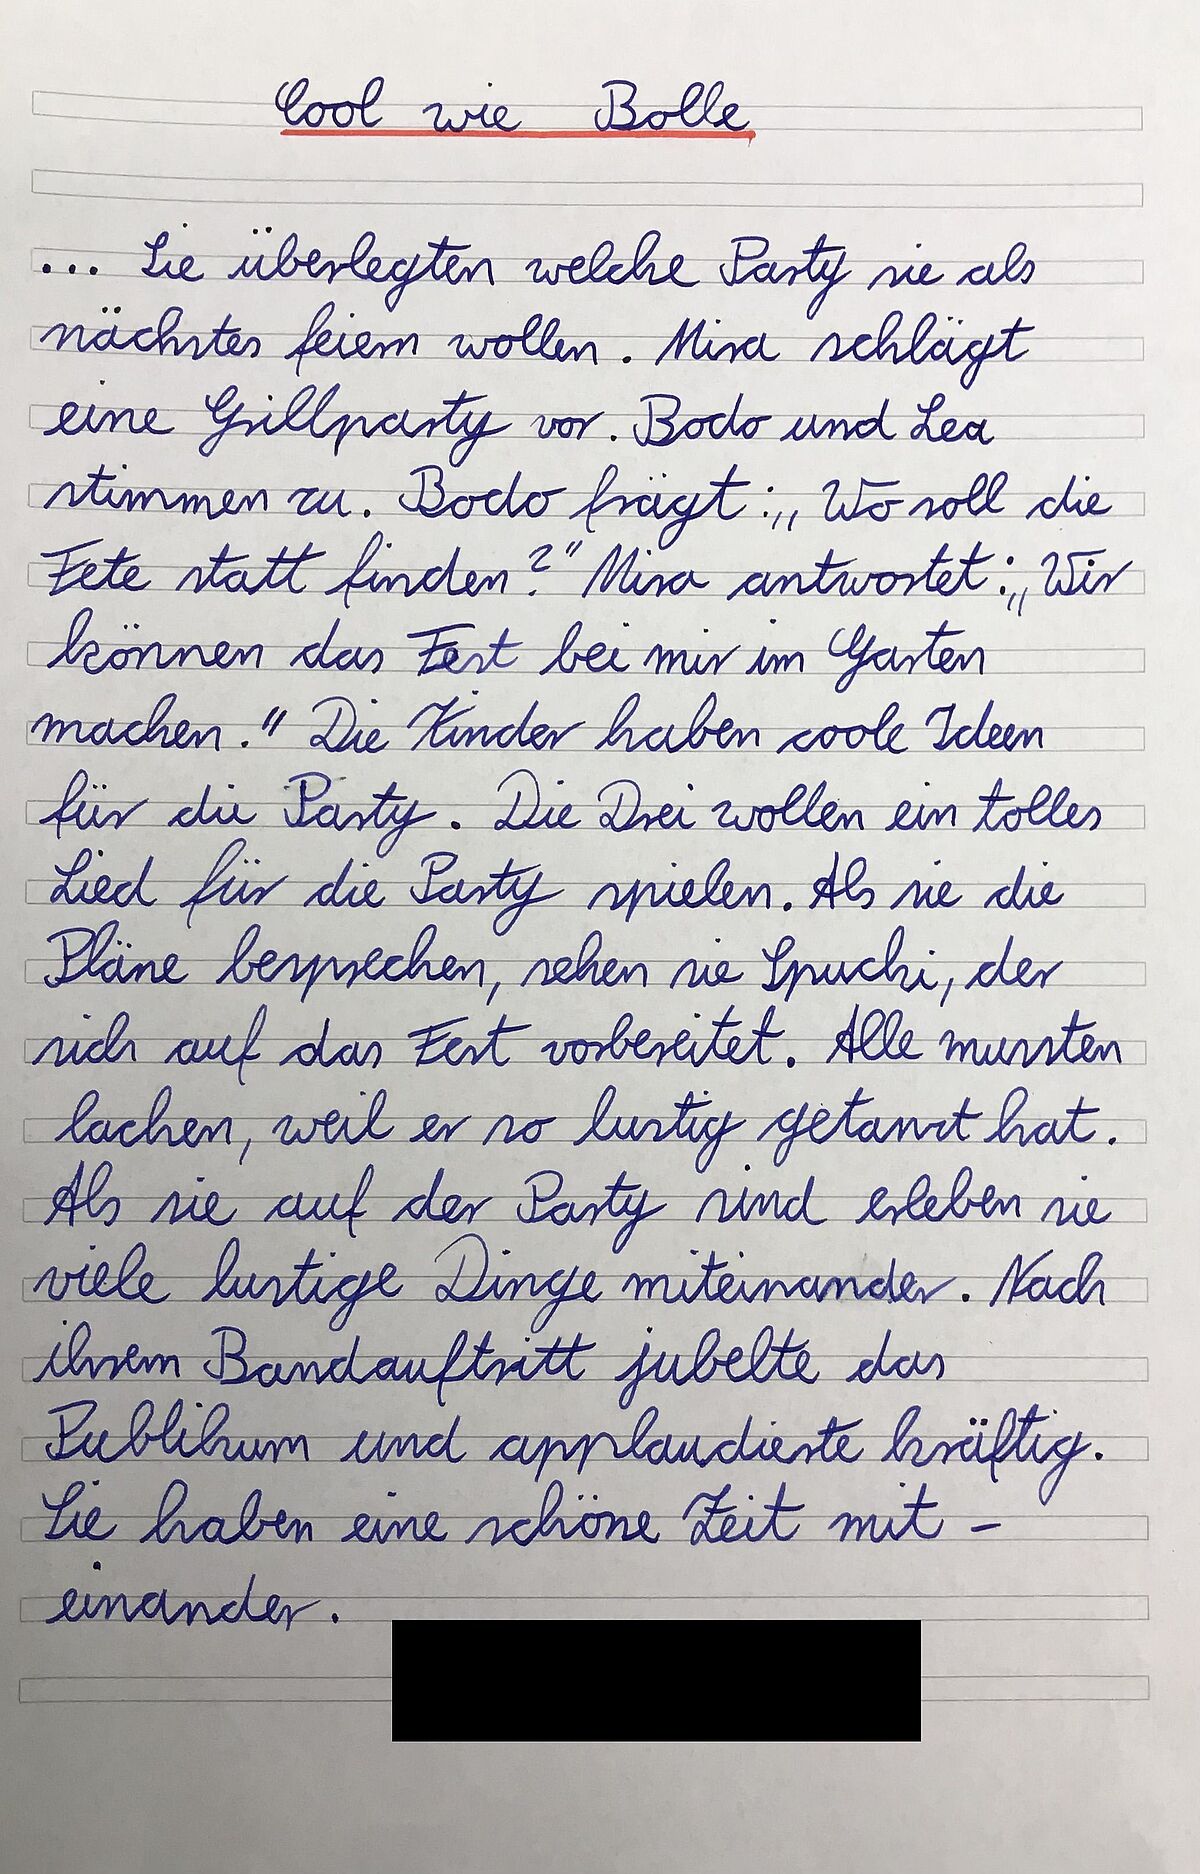 Cool wie Bolle
... Sie überlegten welche Party sie als
nächstes feiern wollen. Mira schlägt
eine Grillparty vor. Bodo und Lea
stimmen zu. Bodo frägt:„Wo soll die
Fete statt finden?" Mira antwortet:„Wir
können das Fest bei mir im Garten
machen." Die Kinder haben coole Ideen
für die Party. Die Drei wollen ein tolles
Lied für die Party spielen. Als sie die
Pläne besprechen, sehen sie Spucki, der
sich auf das Fest vorbereitet. Alle mussten
lachen, weil er so lustig getanzt hat.
Als sie auf der Party sind erleben sie
viele lustige Dinge miteinander. Nach
ihrem Bandauftritt jubelte das
Publikum und applaudierte kräftig.
Sie haben eine schöne Zeit mit-
einander.